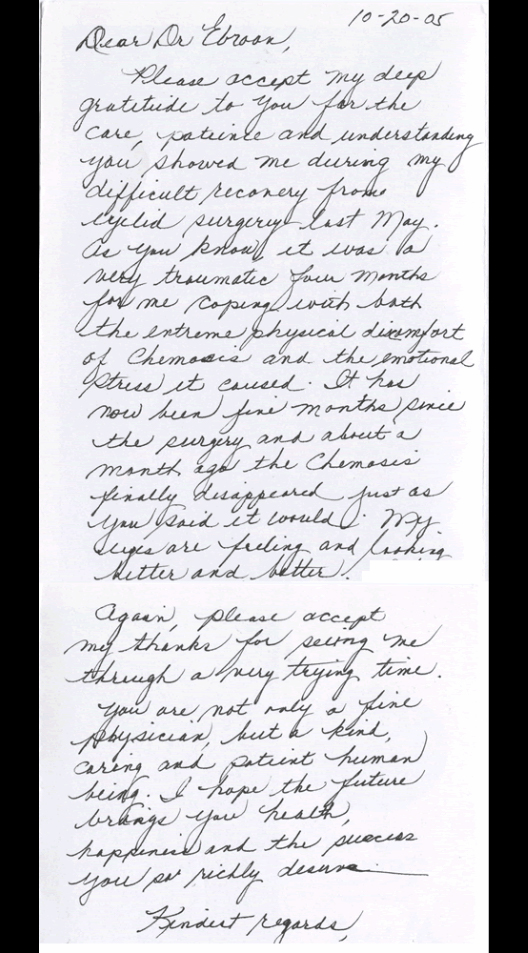 10-20-05
Dear Dr Ebroon,
Please accept my deep
gratitude to you for the
care, patience and understanding
you showed me during my
difficult recovery from
eyelid surgery last May.
As you know, it was a
very traumatic four months
for me coping with both
the extreme physical discomfort
of Chemosis and the emotional
stress it caused. It has
now been five months since
the surgery and about a
month ago the Chemosis
finally disappeared just as
you said it would. My
eyes are feeling and looking
better and better!
Again, please accept
my thanks for seeing me
through a very trying time.
You are not only a fine
physician, but a kind,
caring and patient human
being. I hope the future
brings you health,
happiness and the success
you so richly deserve.
Kindest regards,